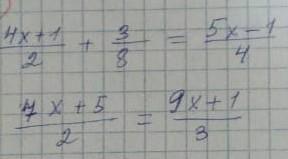 (4x+1)/2 + 3/8 = (5x-1)/4
(7x+5)/2 = (9x+1)/3